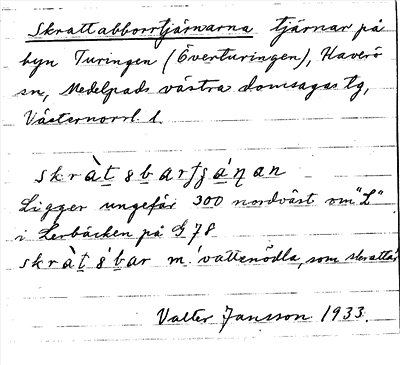 Skrattabborrtjärnarna tjärnar på
byn Turingen (Överturingen), Haverö
sn, Medelpads västra domsagas tg,
Västernorrl. l.
skràt̠sb̠arţʃánan
Ligger ungefär 300 nordväst om "L"
i Lerbäcken på G 78
skràt̠sb̠ar m. 'vattenödla, som skrattar'
Valter Jansson 1933.